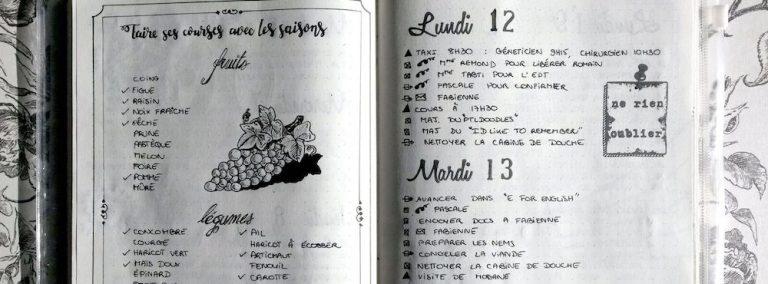 Faire ses courses avec les saisons
fruits
COING
✓ FIGUE
✓ RAISIN
✓ NOIX FRAÎCHE
✓ PÊCHE
PRUNE
PASTÈQUE
MELON
POIRE
✓ POMME
MÛRE
légumes
✓ CONCOMBRE
COURGE
✓ HARICOT VERT
✓ MAÏS DOUX
ÉPINARD
✓ AIL
HARICOT À ÉCOSSER
✓ ARTICHAUT
FENOUIL
✓ CAROTTE
Lundi 12
TAXI 8H30 : GÉNÉTICIEN 9H15, CHIRURGIEN 10H30
Mme REMOND POUR LIBÉRER ROMAIN
Mme TABTI POUR L'EDT
PASCALE POUR CONFIRMER
FABIENNE
COURS À 17H30
MAJ. DU "PTLDOODLES"
MAJ DU "I'D LIKE TO REMEMBER"
NETTOYER LA CABINE DE DOUCHE
ne rien
oublier
Mardi 13
AVANCER DANS "E FOR ENGLISH"
PASCALE
ENVOYER DOCS À FABIENNE
FABIENNE
PRÉPARER LES NEMS
CONGELER LA VIANDE
NETTOYER LA CABINE DE DOUCHE
VISITE DE MORANE